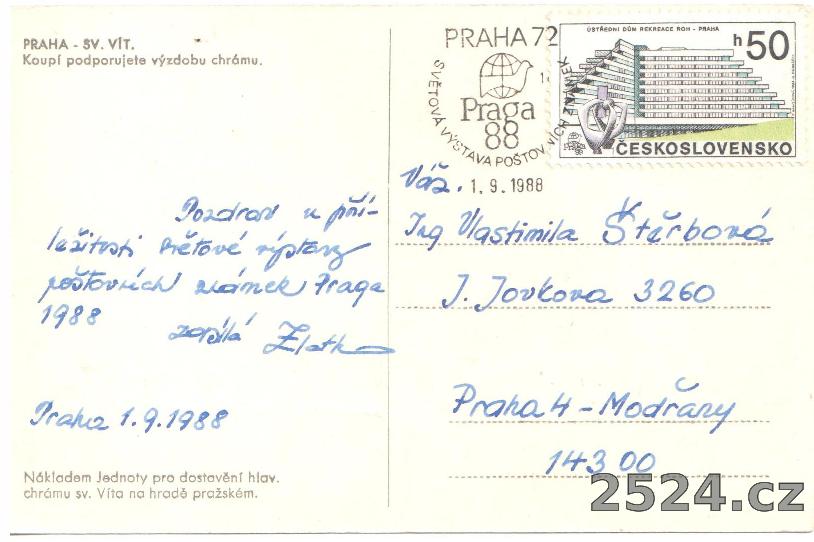 PRAHA - SV. VÍT.
Koupí podporujete výzdobu chrámu.
Pozdrav u pří-
ležitosti světové výstavy
poštovních známek Praga
1988
zasílá Zlatk
Praha 1.9.1988
Nákladem Jednoty pro dostavění hlav.
chrámu sv. Víta na hradě pražském.
PRAHA 72
Praga
88
SVĚTOVÁ VÝSTAVA POŠTOVNÍCH ZNÁMEK
1.9.1988
ÚSTŘEDNÍ DŮM REKREACE ROH - PRAHA
h50
ČESKOSLOVENSKO
Váž.
Ing Vlastimila Štěrbová
J. Jovkova 3260
Praha 4 - Modřany
143 00
2524.cz